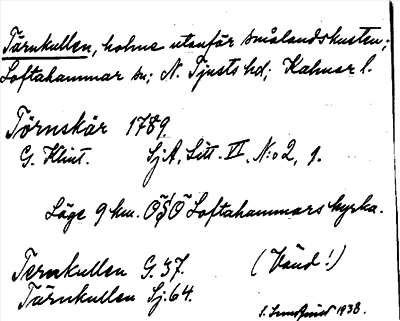 Tärnkullen, holme utanför smålandskusten;
Loftahammar sn; N. Tjusts hd; Kalmar l.
Törnskär 1789.
G. Klint. SjA, Litt. II, N:o 2, 1.
Läge 9 km. OSO Loftahammars kyrka.
Ternkullen G. 37. (Vänd!)
Tärnkullen Sj. 64.
1938.